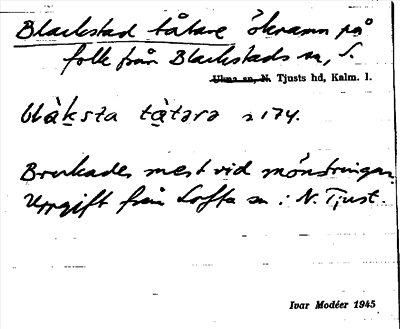 Blackstad tåtare öknamn på
folk från Blackstads sn, S.
Ukna sn, N. Tjusts hd, Kalm. l.
blàksta tàtara s 174.
Brukades mest vid mönstringar.
Uppgift från Lofta sn i N. Tjust.
Ivar Modéer 1945